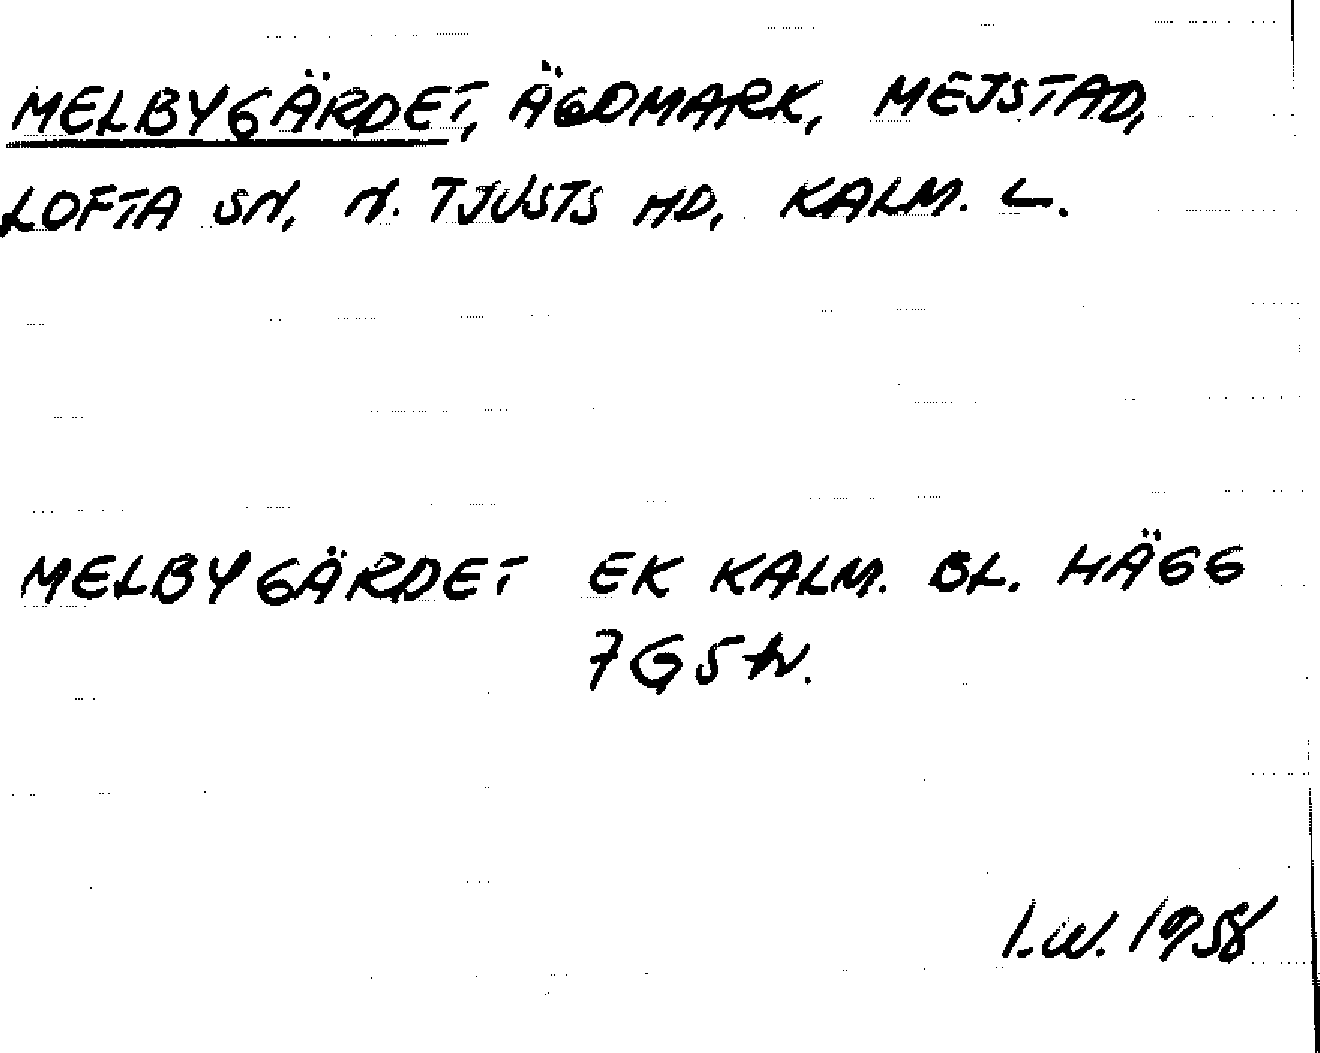 MELBYGÄRDET, ÄGOMARK, MEJSTAD,
LOFTA SN, N. TJUSTS HD, KALM. L.
MELBYGÄRDET EK KALM. BL. HÄGG
7G5h.
I.W. 1958